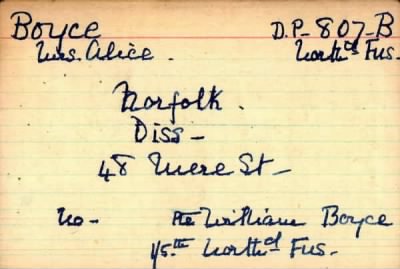 Boyce D.P-807-B
Mrs. Alice. North'd Fus.
Norfolk.
Diss-
48 Mere St-
No- Pte William Boyce
1/5.th North'd Fus.